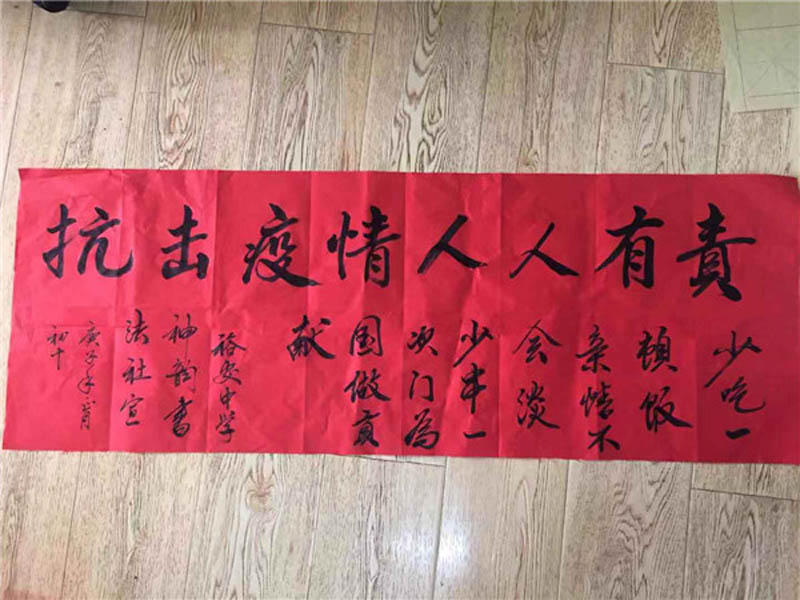 抗击疫情人人有责
少吃一
顿饭
亲情不
会淡
少串一
次门为
国做贡
献
裕安中学
袖韵书
法社宣
庚子年正月
初十